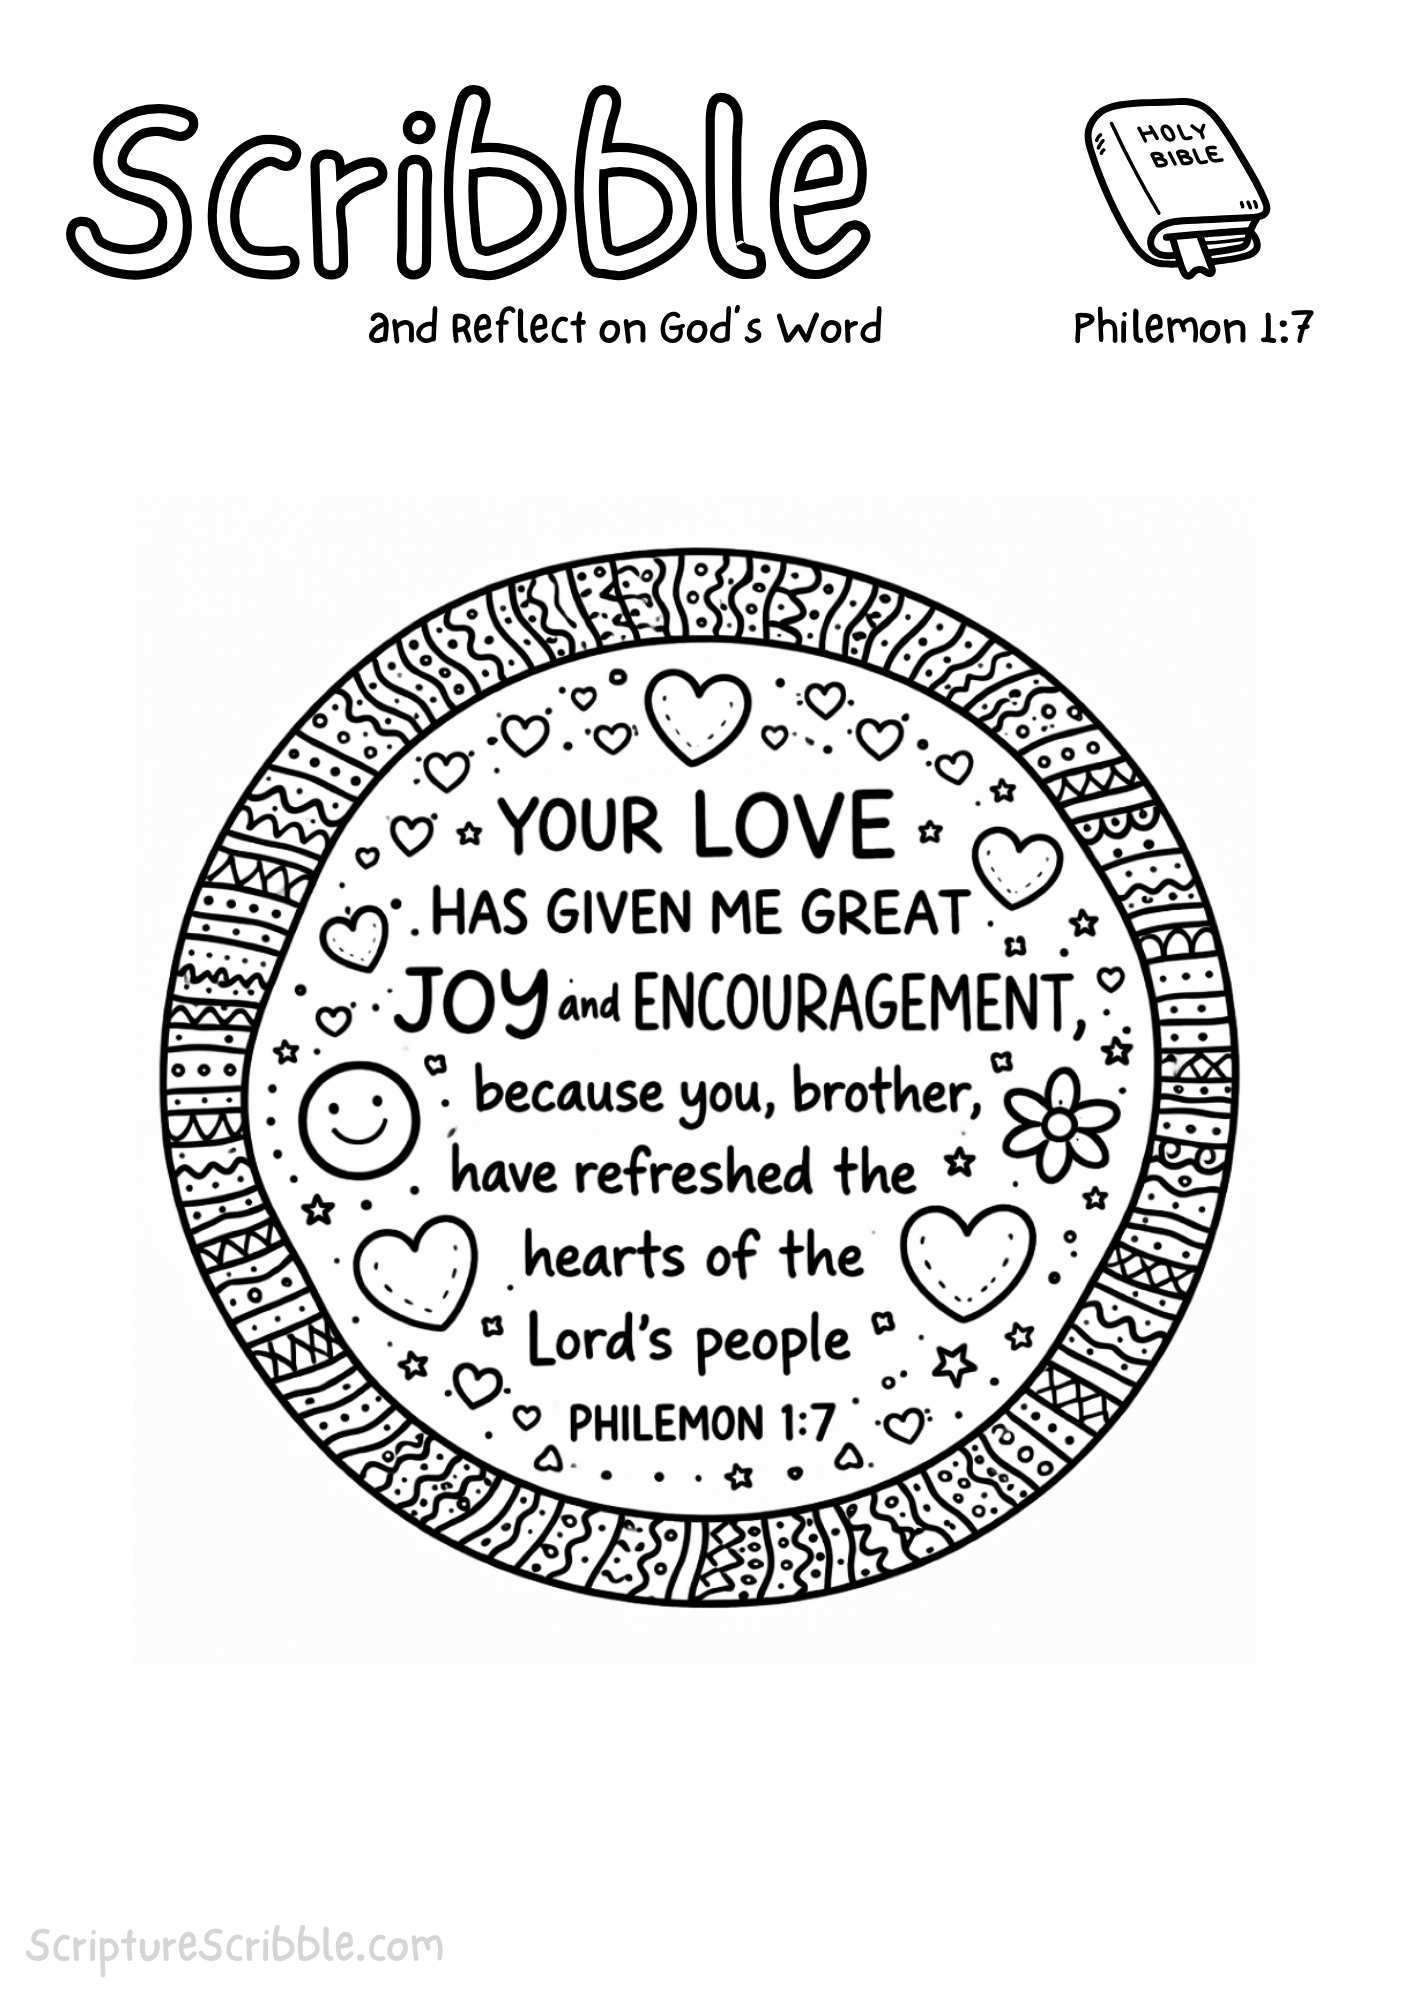 Scribble
HOLY
BIBLE
and Reflect on God's Word
Philemon 1:7
YOUR LOVE
HAS GIVEN ME GREAT
JOY and ENCOURAGEMENT,
because you, brother,
have refreshed the
hearts of the
Lord's people
PHILEMON 1:7
ScriptureScribble.com